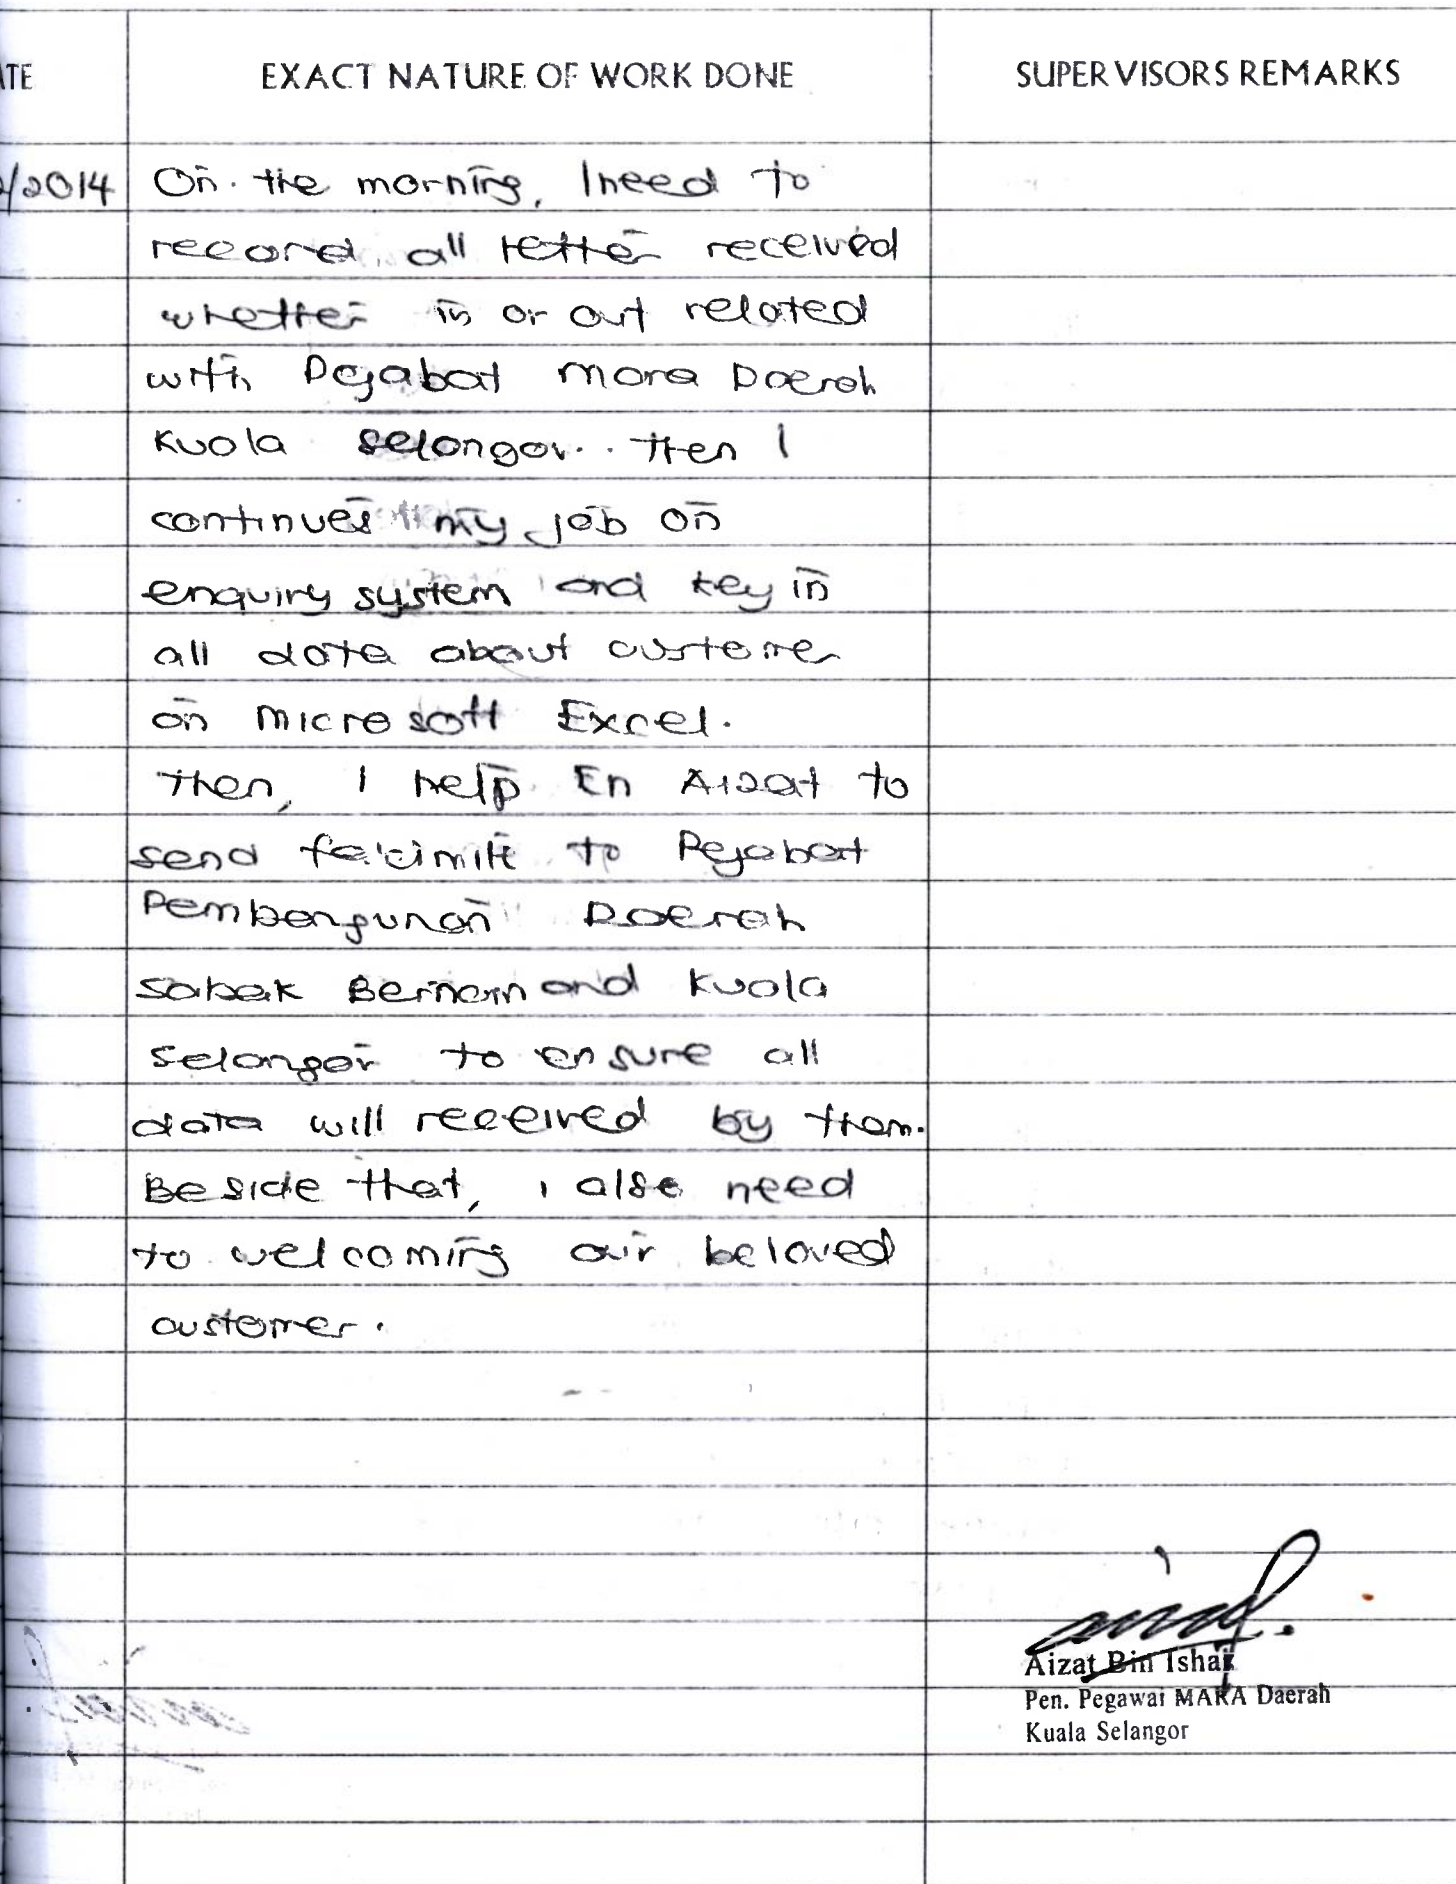 ATE EXACT NATURE OF WORK DONE SUPERVISORS REMARKS
/2014 On the morning, I need to
record all letter received
whether in or out related
with Pejabat Mara Daerah
Kuala Selangor. Then I
continues my job on
enquiry system and key in
all data about custome
on Microsoft Excel.
Then, I help En Aizat to
send facimile to Pejabat
Pembangunan Daerah
Sabak Bernam and Kuala
Selangor to ensure all
data will received by them.
Beside that, i also need
to welcoming our beloved
customer.
Aizat Bin Ishak
Pen. Pegawai MARA Daerah
Kuala Selangor